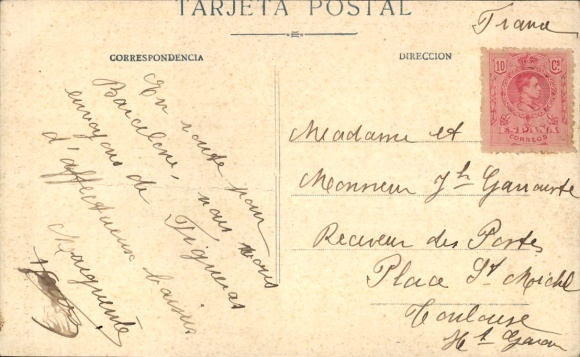 TARJETA POSTAL
CORRESPONDENCIA
DIRECCION
En route pour
Barcelone, nous vous
envoyons de Figueras
d'affectueux baisers
Marguerite
10 Cs
ESPAÑA
CORREOS
Madame et
Monsieur Jh
Receveur des Postes
Place St Michel
Toulouse
Hte Garonne